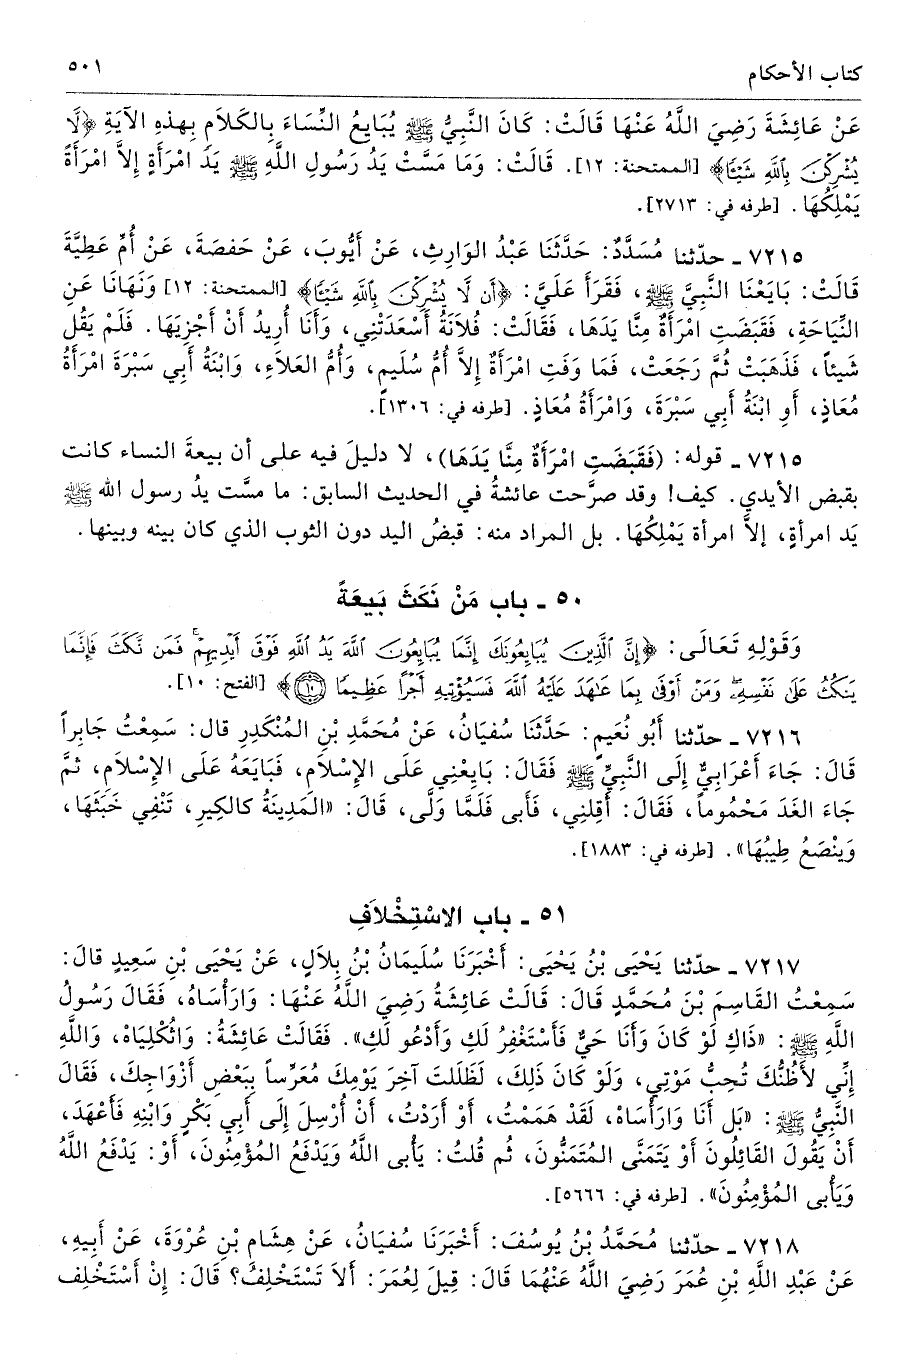 كتاب الأحكام ٥٠١
عَنْ عَائِشَةَ رَضِيَ اللَّهُ عَنْهَا قَالَتْ: كَانَ النَّبِيُّ ﷺ يُبَايِعُ النِّسَاءَ بِالكَلَامِ بِهذِهِ الآيَةِ ﴿لَّا
يُشْرِكْنَ بِاللَّهِ شَيْئًا﴾ [الممتحنة: ١٢]. قَالَتْ: وَمَا مَسَّتْ يَدُ رَسُولِ اللَّهِ ﷺ يَدَ امْرَأَةٍ إِلاَّ امْرَأَةً
يَمْلِكُهَا. [طرفه في: ٢٧١٣].
٧٢١٥ ـ حدّثنا مُسَدَّدٌ: حَدَّثَنَا عَبْدُ الوَارِثِ، عَنْ أَيُّوبَ، عَنْ حَفصَةَ، عَنْ أُمِّ عَطِيَّةَ
قَالَتْ: بَايَعْنَا النَّبِيَّ ﷺ، فَقَرَأَ عَلَيَّ: ﴿أَن لَّا يُشْرِكْنَ بِاللَّهِ شَيْئًا﴾ [الممتحنة: ١٢] وَنَهَانَا عَنِ
النِّيَاحَةِ، فَقَبَضَتِ امْرَأَةٌ مِنَّا يَدَهَا، فَقَالَتْ: فُلاَنَةُ أَسْعَدَتْنِي، وَأَنَا أُرِيدُ أَنْ أَجْزِيَهَا. فَلَمْ يَقُل
شَيئاً، فَذَهَبَتْ ثُمَّ رَجَعَتْ، فَمَا وَفَتِ امْرَأَةٌ إِلاَّ أُمُّ سُلَيمٍ، وَأُمُّ العَلاَءِ، وَابْنَةُ أَبِي سَبْرَةَ امْرَأَةُ
مُعَاذٍ، أَوِ ابْنَةُ أَبِي سَبْرَةَ، وَامْرَأَةُ مُعَاذٍ. [طرفه في: ١٣٠٦].
٧٢١٥ ـ قوله: (فَقَبَضَتِ امْرَأَةٌ مِنَّا يَدَهَا)، لا دليلَ فيه على أن بيعةَ النساء كانت
بقبض الأيدي. كيف! وقد صرَّحت عائشةُ في الحديث السابق: ما مسَّت يدُ رسول الله ﷺ
يَد امرأةٍ، إلاَّ امرأة يَمْلِكُهَا. بل المراد منه: قبضُ اليد دون الثوب الذي كان بينه وبينها.
٥٠ ـ باب مَنْ نَكَثَ بَيعَةً
وَقَوْلِهِ تَعَالَى: ﴿إِنَّ الَّذِينَ يُبَايِعُونَكَ إِنَّمَا يُبَايِعُونَ اللَّهَ يَدُ اللَّهِ فَوْقَ أَيْدِيهِمْ ۚ فَمَن نَّكَثَ فَإِنَّمَا
يَنكُثُ عَلَىٰ نَفْسِهِۦ وَمَنْ أَوْفَىٰ بِمَا عَٰهَدَ عَلَيْهُ اللَّهَ فَسَيُؤْتِيهِ أَجْرًا عَظِيمًا ١٠﴾ [الفتح: ١٠].
٧٢١٦ ـ حدّثنا أَبُو نُعَيمٍ: حَدَّثَنَا سُفيَانُ، عَنْ مُحَمَّدِ بْنِ المُنْكَدِرِ قال: سَمِعْتُ جَابِراً
قَالَ: جَاءَ أَعْرَابِيٌّ إِلَى النَّبِيِّ ﷺ فَقَالَ: بَايِعْنِي عَلَى الإِسْلاَمِ، فَبَايَعَهُ عَلَى الإِسْلاَمِ، ثمَّ
جَاءَ الغَدَ مَحْمُوماً، فَقَالَ: أَقِلنِي، فَأَبى فَلَمَّا وَلَّى، قَالَ: «المَدِينَةُ كالكِيرِ، تَنْفِي خَبَثَهَا،
وَيَنْصَعُ طِيبُهَا». [طرفه في: ١٨٨٣].
٥١ ـ باب الاِسْتِخْلاَفِ
٧٢١٧ ـ حدّثنا يَحْيَى بْنُ يَحْيَى: أَخْبَرَنَا سُلَيمَانُ بْنُ بِلاَلٍ، عَنْ يَحْيَى بْنِ سَعِيدٍ قالَ:
سَمِعْتُ القَاسِمَ بْنَ مُحَمَّدٍ قَالَ: قَالَتْ عَائِشَةُ رَضِيَ اللَّهُ عَنْهَا: وَارَأْسَاهُ، فَقَالَ رَسُولُ
اللَّهِ ﷺ: «ذَاكِ لَوْ كَانَ وَأَنَا حَيٌّ فَأَسْتَغْفِرُ لَكِ وَأَدْعُو لَكِ». فَقَالَتْ عَائِشَةُ: وَاثُكْلِيَاهْ، وَاللَّهِ
إِنِّي لأَظُنُّكَ تُحِبُّ مَوْتِي، وَلَوْ كَانَ ذَلِكَ، لَظَلَلتَ آخِرَ يَوْمِكَ مُعَرِّساً بِبَعْضِ أَزْوَاجِكَ، فَقَالَ
النَّبِيُّ ﷺ: «بَل أَنَا وَارَأْسَاهْ، لَقَدْ هَمَمْتُ، أَوْ أَرَدْتُ، أَنْ أُرْسِلَ إِلَى أَبِي بَكْرٍ وَابْنِهِ فَأَعْهَدَ،
أَنْ يَقُولَ القَائِلُونَ أَوْ يَتَمَنَّى المُتَمَنُّونَ، ثم قُلتُ: يَأْبى اللَّهُ وَيَدْفَعُ المُؤْمِنُونَ، أَوْ: يَدْفَعُ اللَّهُ
وَيَأْبى المُؤْمِنُونَ». [طرفه في: ٥٦٦٦].
٧٢١٨ ـ حدّثنا مُحَمَّدُ بْنُ يُوسُفَ: أَخْبَرَنَا سُفيَانُ، عَنْ هِشَامِ بْنِ عُرْوَةَ، عَنْ أَبِيهِ،
عَنْ عَبْدِ اللَّهِ بْنِ عُمَرَ رَضِيَ اللَّهُ عَنْهُمَا قَالَ: قِيلَ لِعُمَرَ: أَلاَ تَسْتَخْلِفُ؟ قَالَ: إِنْ أَسْتَخْلِف